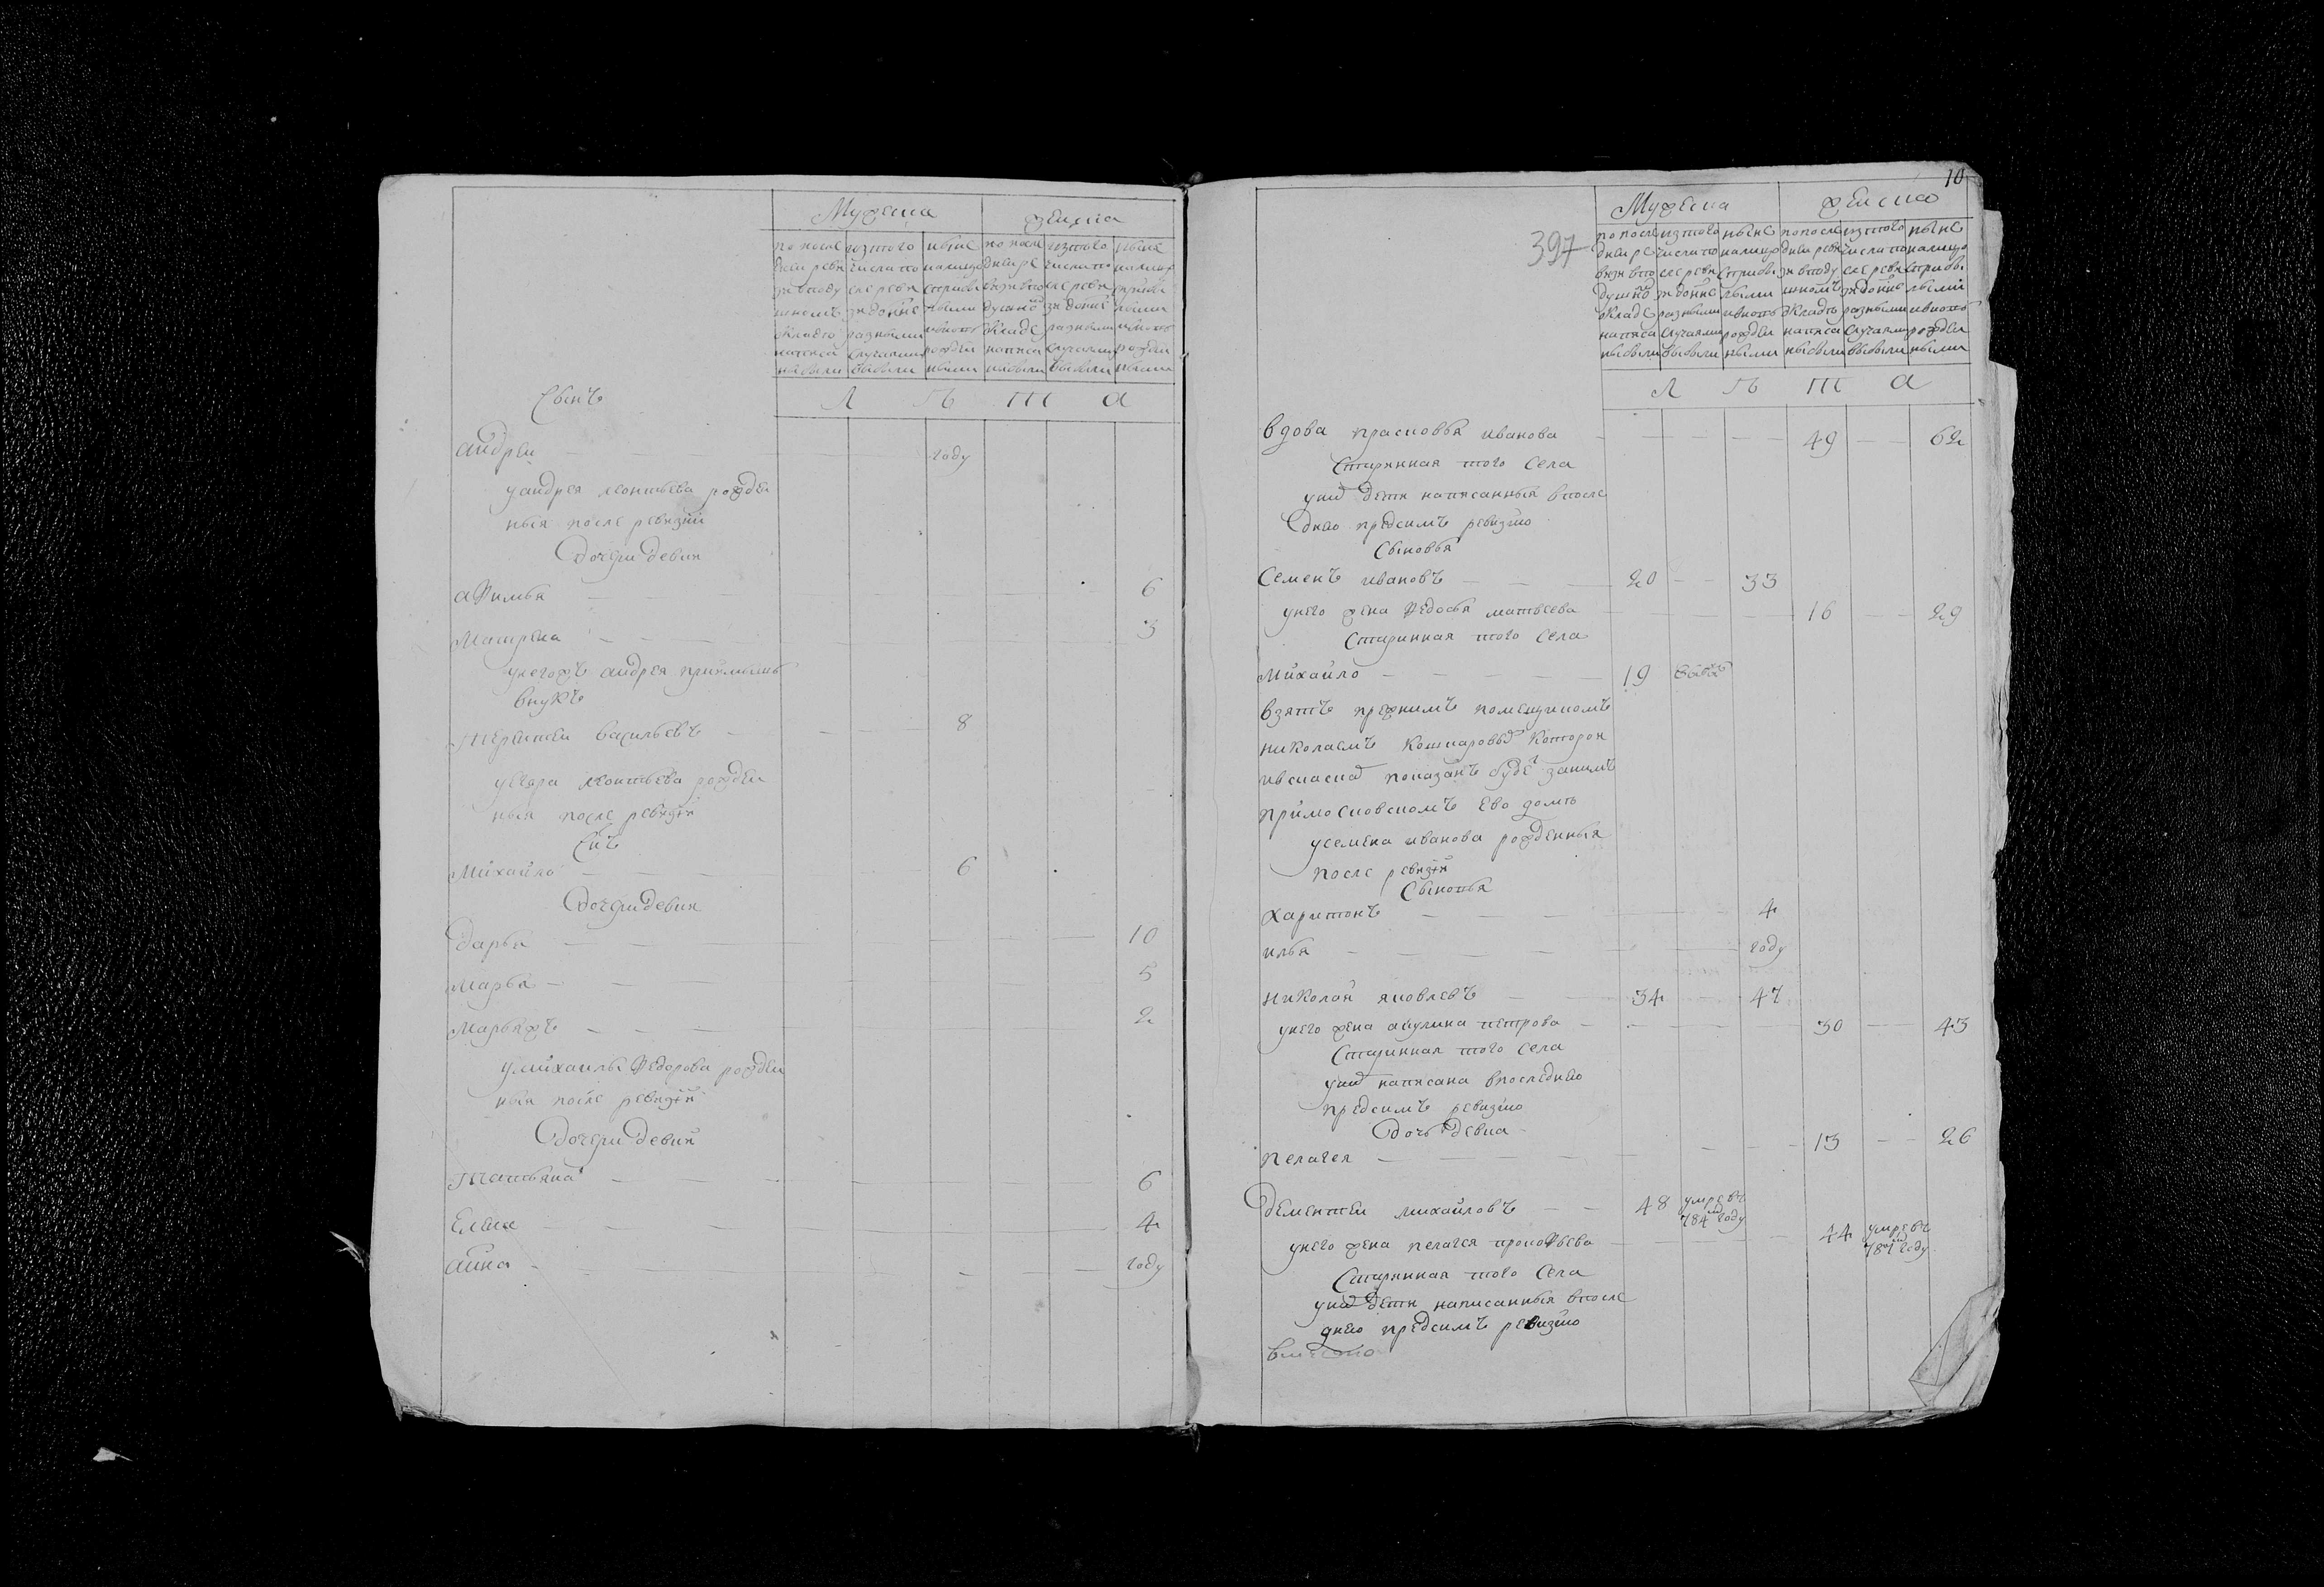 Мужеска
женска
по после
дней реви
зи в поду
шномъ
окладѣ
написа
ны были
изтого
числа по
сле реви
зи доные
разными
случаями
выбыли
ныне
налицо
с прибы
лыми
и вновь
рожден
ными
по после
дней ре
визи в по
душно
окладе
написа
ны были
изтого
числа по
сле реви
зи доные
разными
случаями
выбыли
ныне
налицо
с прибы
лыми
и вновь
рожден
ными
л ѣ т а
Сынъ
андрей году
у андрея леонтьева рожден
ныя после ревизии
дочери девки
афимья 6
Матрена 3
у негожъ андрея приемышъ
внукъ
терентей васильевъ 8
леонтьева рожден
ныя после ревизiи
Снъ
михайло 6
дочери девки
дарья 10
марья 5
марьяжъ 2
у михаилы федорова рожден
ныя после ревизiи
дочери девки
татьяна 6
Елена 4
анна году
10
397
Мужеска
женска
по после
дней ре
визи в по
душно
окладе
написа
ны были
изтого
числа по
сле реви
зи доные
разными
случаями
выбыли
ныне
налицо
с прибы
лыми
и вновь
рожден
ными
по после
дней реви
зи в поду
шномъ
окладѣ
написа
ны были
изтого
числа по
сле реви
зи доные
разными
случаями
выбыли
ныне
налицо
с прибы
лыми
и вновь
рожден
ными
л ѣ т а
вдова прасковья иванова 49 62
Старинная того села
у ни дети написанныя в после
днею предсимъ ревизию
Сыновья
Семенъ ивановъ 20 33
у него жена федосья матвеева 16 29
Старинная того села
михайло 19
взятъ прежнимъ помещикомъ
николаемъ которои
показанъ буде занимъ
примосковскомъ ево домѣ
у семена иванова рожденныя
после ревизiи
Сыновья
харитонъ 4
илья году
николай яковлевъ 34 47
у него жена акулина петрова 30 43
Старинная того села
у ни написана в последнею
предсимъ ревизию
дочь девка
пелагея 13 26
дементей михайловъ 48 умре въ
784м году
у него жена пелагея прокофьева 44 умре въ
787м году
Старинная того села
у ни дети написанныя в после
днею предсимъ ревизию